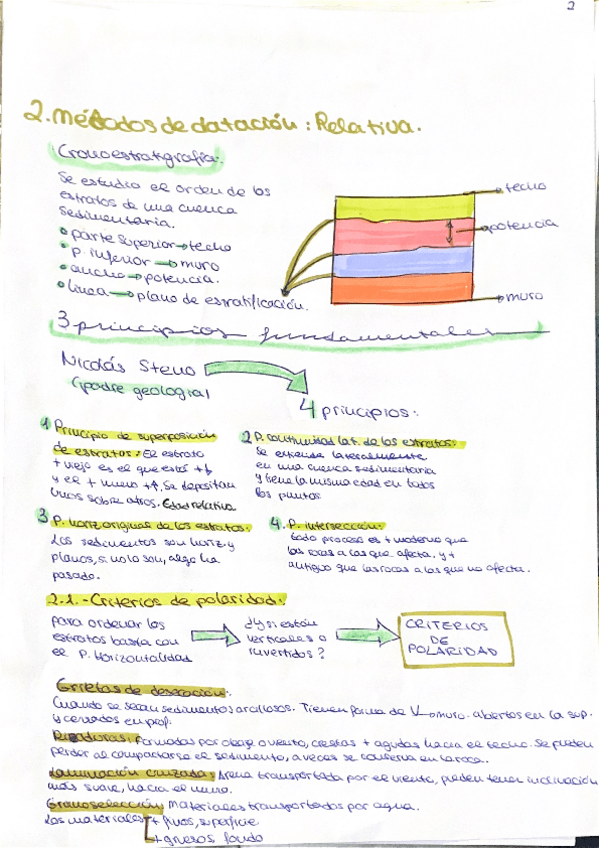 2
2. Métodos de datación: Relativa.
Cronoestratigrafía:
Se estudia el orden de los
estratos de una cuenca
sedimentaria.
• parte superior → techo
• p. inferior → muro
• ancho → potencia.
• línea → plano de estratificación.
techo
potencia
muro
3 principios fundamentales
Nicolás Steno
(padre geología)
4 principios:
1 Principio de superposición
de estratos: El estrato
+ viejo es el que está +b
y el + nuevo +↑. Se depositan
unos sobre otros. Edad relativa
2 P. continuidad lat. de los estratos:
Se extiende lateralmente
en una cuenca sedimentaria
y tiene la misma edad en todos
los puntos.
3 P. horiz original de los estratos:
Los sedimentos son horiz y
planos, si no lo son, algo ha
pasado.
4. P. intersección:
todo proceso es + moderno que
las rocas a las que afecta. y +
antiguo que las rocas a las que no afecta.
2.1.- Criterios de polaridad:
para ordenar los
estratos basta con
el P. Horizontalidad
¿y si están
verticales o
invertidos?
CRITERIOS
DE
POLARIDAD
Grietas de desecación:
Cuando se secan sedimentos arcillosos. Tienen forma de V → muro. abiertos en la sup.
y cerrados en prof.
formadas por oleaje o viento, crestas + agudas hacia el techo. Se pueden
perder al compactarse el sedimento, a veces se conserva en la roca.
Laminación cruzada: Arena transportada por el viento, pueden tener inclinación
más suave, hacia el muro.
Granoselección: Materiales transportados por agua.
Los materiales + finos, superficie
+ gruesos fondo